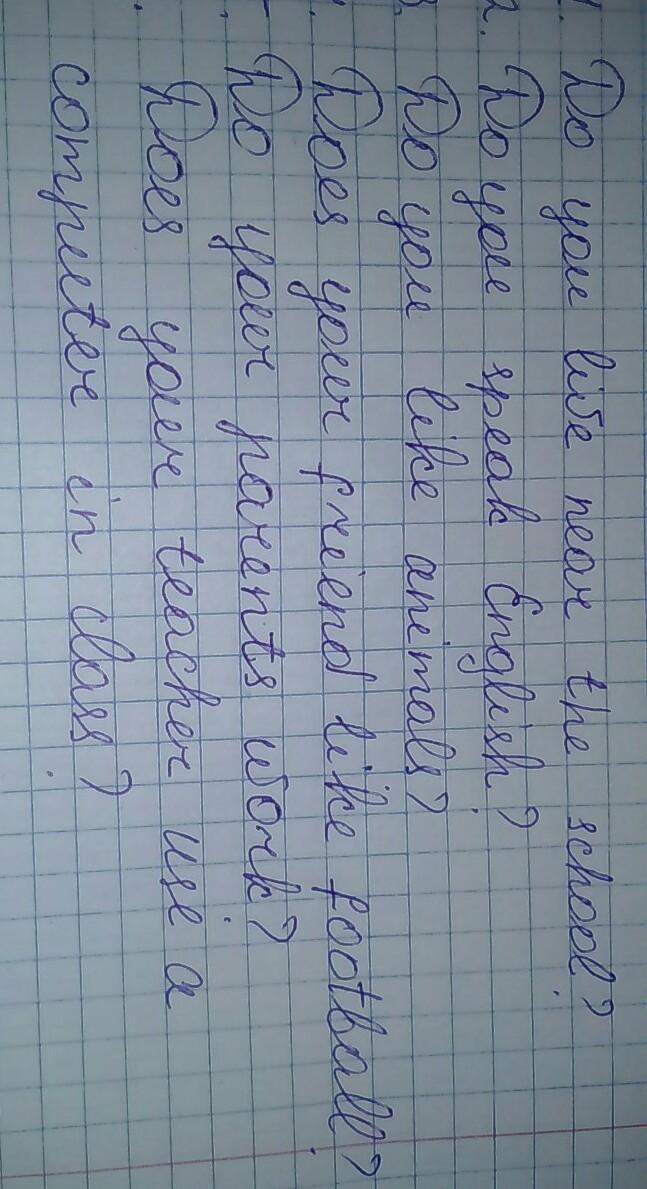 1. Do you live near the school?
2. Do you speak English?
3. Do you like animals?
Does your friend like football?
Do your parents work?
Does your teacher use a
computer in class?